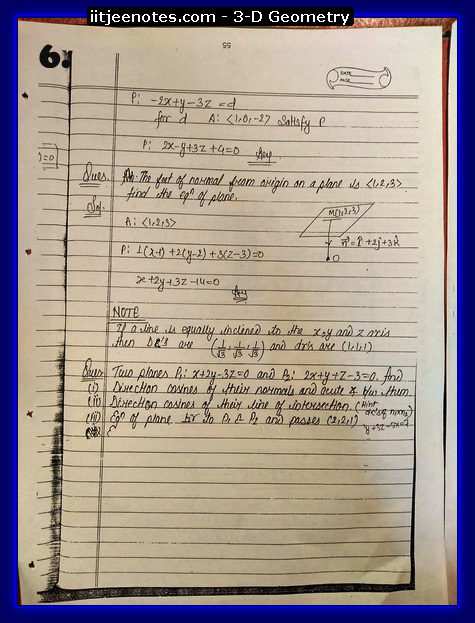 iitjeenotes.com - 3-D Geometry
55
6:
DATE
PAGE
P: -2x+y-3z=d
for d A: <1,0,-2> Satisfy P
P: 2x-y+3z+4=0 Ans
)=0
Ques. The foot of normal from origin on a plane is <1,2,3>
find the eqn of plane.
Sol.
M(1,2,3)
A: <1,2,3>
n = i + 2j + 3k
P: 1(x-1)+2(y-2)+3(z-3)=0
O
x+2y+3z-14=0
Ans
NOTE
If a line is equally inclined to the x, y and z axis
then DC's are (1/√3, 1/√3, 1/√3) and dr's are (1,1,1)
Ques Two planes P1: x+2y-3z=0 and P2: 2x+y+z-3=0. find
(i) Direction cosines of their normals and acute ∠ b/w them
(ii) Direction cosines of their line of intersection. (Hint
(iii) Eqn of plane ⊥r to P1 & P2 and passes (2,2,1)